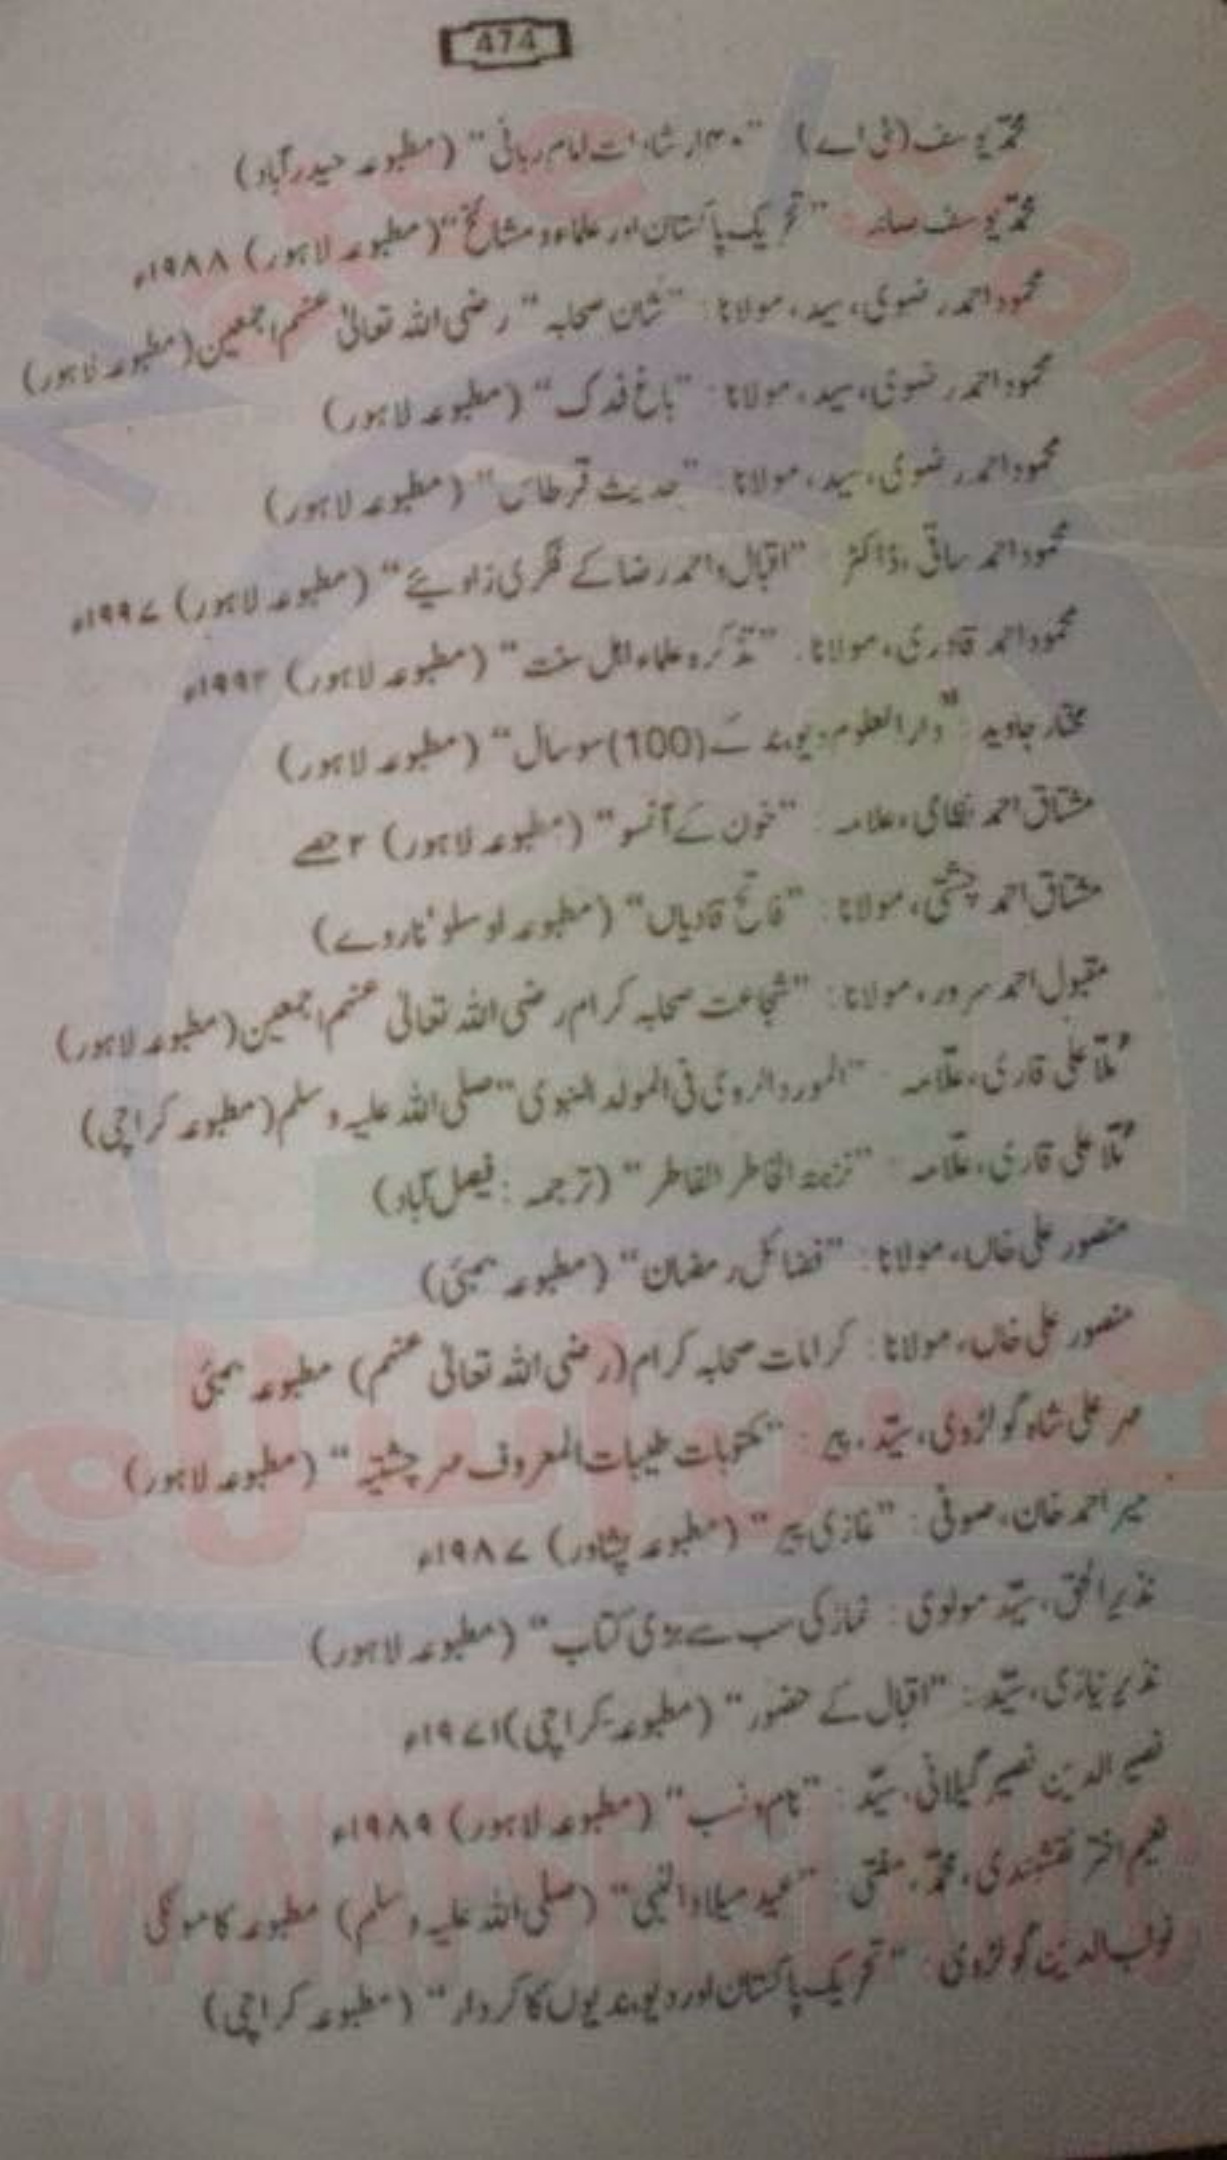 474
محمّد یوسف (بی اے) "۴۰ ارشادات امام ربانی" (مطبوعہ حیدرآباد)
محمّد یوسف "تحریک پاکستان اور علماء و مشائخ" (مطبوعہ لاہور) ۱۹۸۸ء
محمود احمد رضوی، سید، مولانا: "شان صحابہ" رضی اللہ تعالیٰ عنہم اجمعین (مطبوعہ لاہور)
محمود احمد رضوی، سید، مولانا: "باغ فدک" (مطبوعہ لاہور)
محمود احمد رضوی، سید، مولانا: "حدیث قرطاس" (مطبوعہ لاہور)
محمود احمد ساقی، ڈاکٹر: "اقبال و احمد رضا کے فکری زاویئے" (مطبوعہ لاہور) ۱۹۹۷ء
محمود احمد قادری، مولانا: "تذکرہ علماء اہل سنت" (مطبوعہ لاہور) ۱۹۹۲ء
مختار جاوید: "دارالعلوم دیوبند کے (100) سو سال" (مطبوعہ لاہور)
مشتاق احمد نظامی، علامہ: "خون کے آنسو" (مطبوعہ لاہور) ۲ حصے
مشتاق احمد چشتی، مولانا: "فاتح قادیاں" (مطبوعہ اوسلو' ناروے)
مقبول احمد سرور، مولانا: "شجاعت صحابہ کرام رضی اللہ تعالیٰ عنہم اجمعین (مطبوعہ لاہور)
مُلّا علی قاری، علّامہ: "المورد الروی فی المولد النبوی" صلی اللہ علیہ وسلم (مطبوعہ کراچی)
مُلّا علی قاری، علّامہ: "نزہتہ الخاطر الفاطر" (ترجمہ: فیصل آباد)
منصور علی خاں، مولانا: "فضائل رمضان" (مطبوعہ بمبئی)
منصور علی خاں، مولانا: کرامات صحابہ کرام (رضی اللہ تعالیٰ عنہم) مطبوعہ بمبئی
مہر علی شاہ گولڑوی، سیّد، پیر: "مکتوبات طیبات المعروف مہر چشتیہ" (مطبوعہ لاہور)
میر احمد خان، صوفی: "غازی پیر" (مطبوعہ پشاور) ۱۹۸۷ء
نذیر الحق، سیّد مولوی: نماز کی سب سے بڑی کتاب" (مطبوعہ لاہور)
نذیر نیازی، سیّد: "اقبال کے حضور" (مطبوعہ کراچی) ۱۹۷۱ء
نصیر الدین نصیر گیلانی، سیّد: "نام و نسب" (مطبوعہ لاہور) ۱۹۸۹ء
نعیم اختر نقشبندی، محمّد، مفتی: "عید میلاد النبی" (صلی اللہ علیہ وسلم) مطبوعہ کامونکی
نواب الدین گولڑوی: "تحریک پاکستان اور دیوبندیوں کا کردار" (مطبوعہ کراچی)